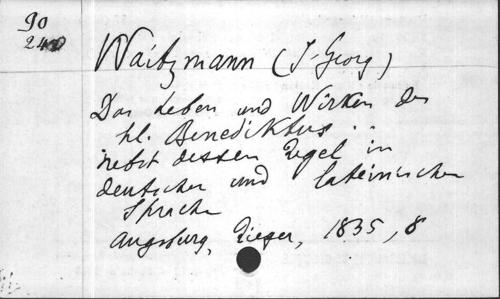 90
Waitzmann (J. Georg)
Das Leben und Wirken des
hl. Benediktus ..
nebst dessen Regel in
deutscher und lateinischer
Sprache
Augsburg, Rieger, 1835, 8